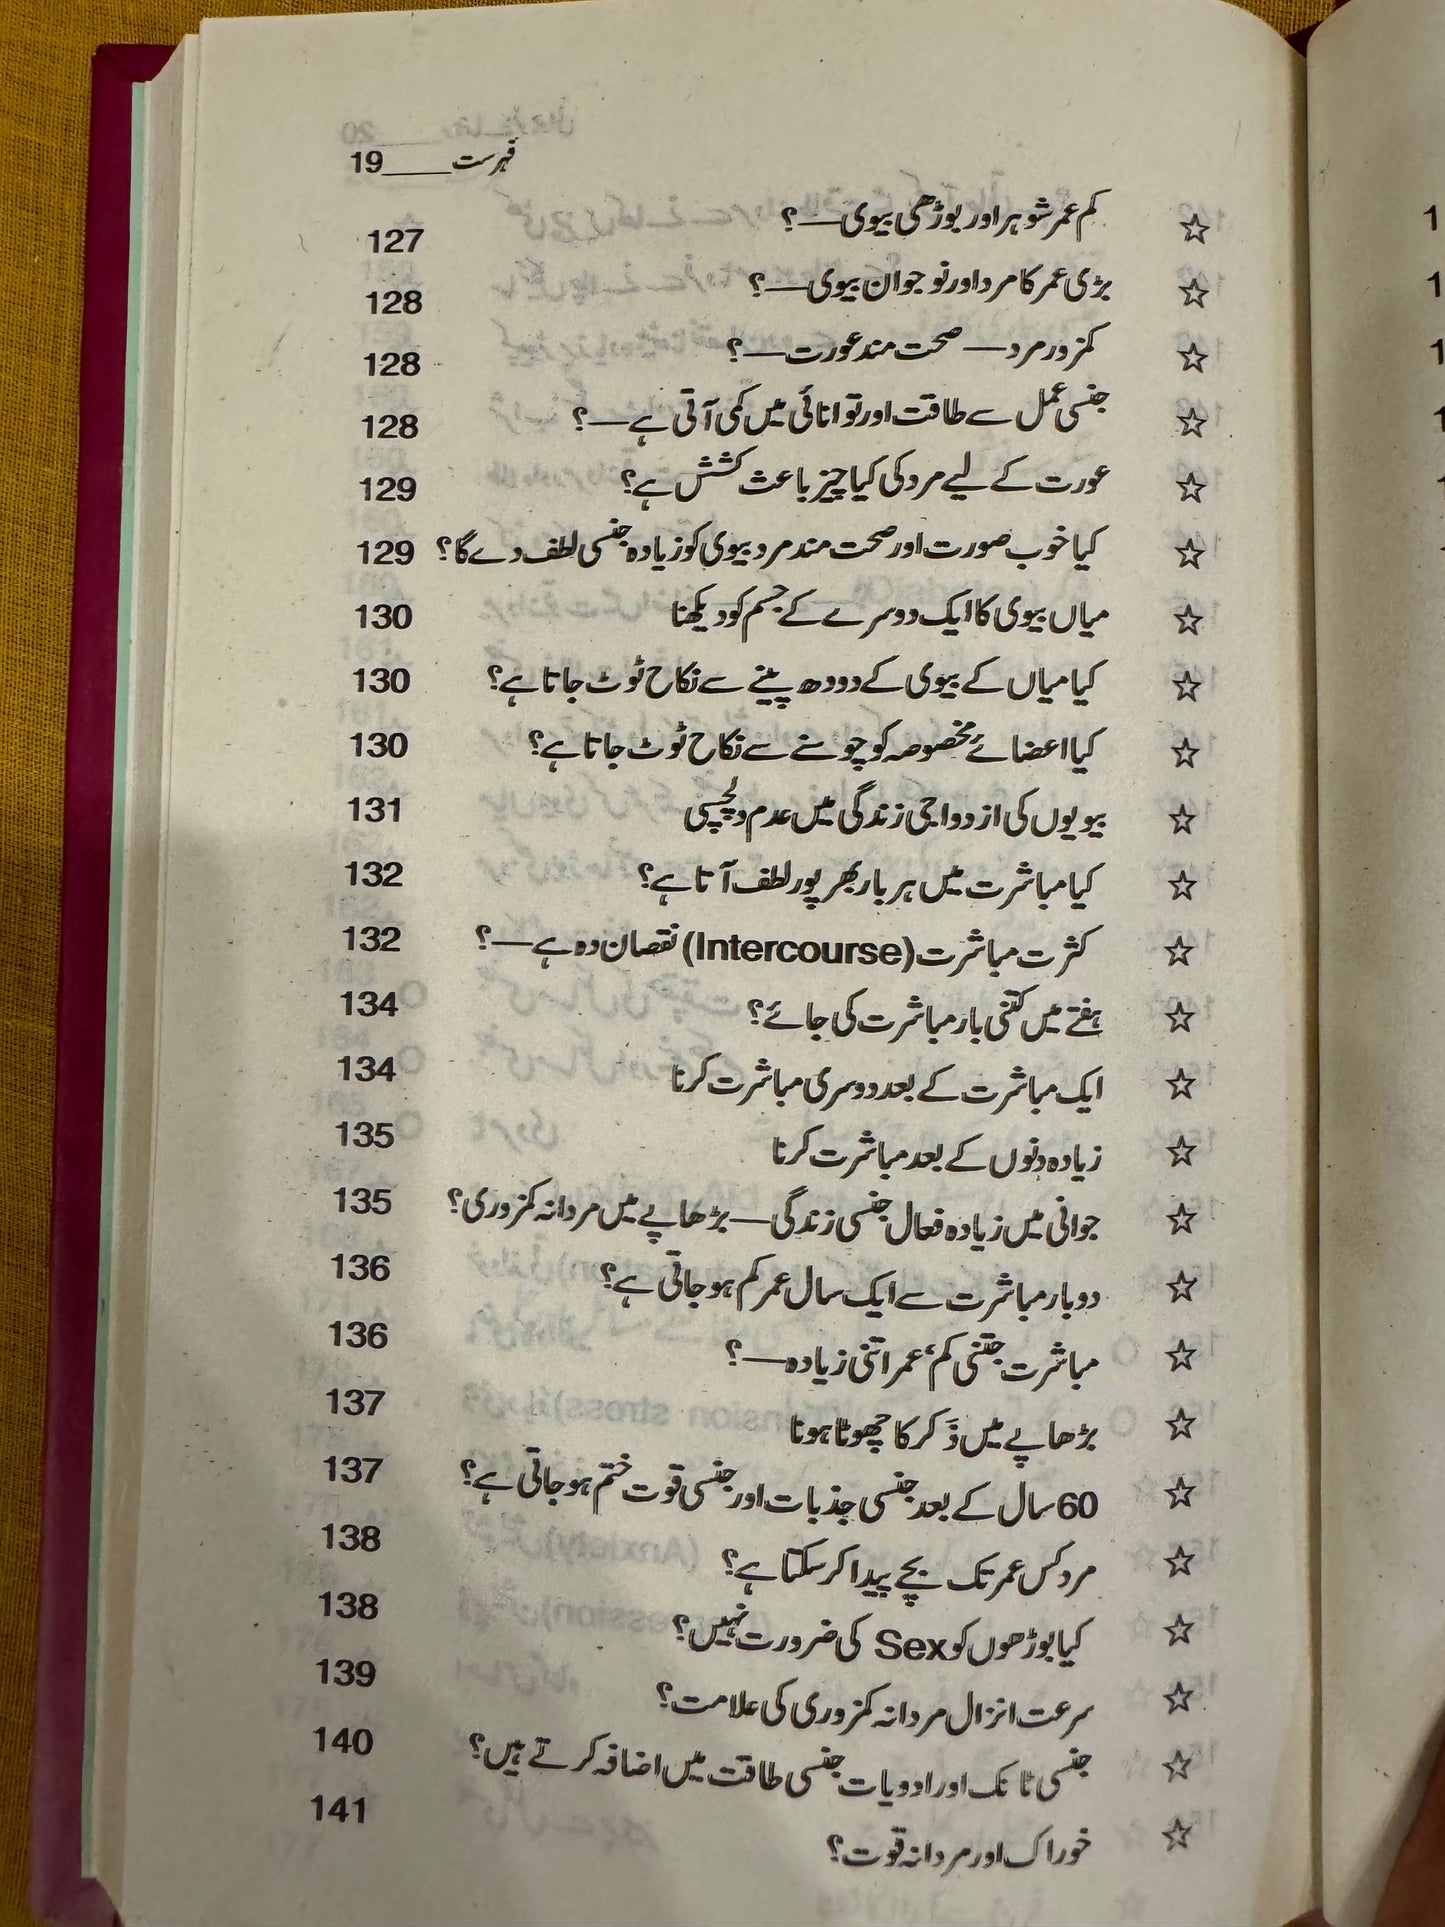 فہرست____19
☆ کم عمر شوہر اور بوڑھی بیوی—؟ 127
☆ بڑی عمر کا مرد اور نوجوان بیوی—؟ 128
☆ کمزور مرد— صحت مند عورت—؟ 128
☆ جنسی عمل سے طاقت اور توانائی میں کمی آتی ہے—؟ 128
☆ عورت کے لیے مرد کی کیا چیز باعث کشش ہے؟ 129
☆ کیا خوب صورت اور صحت مند مرد بیوی کو زیادہ جنسی لطف دے گا؟ 129
☆ میاں بیوی کا ایک دوسرے کے جسم کو دیکھنا 130
☆ کیا میاں کے بیوی کے دودھ پینے سے نکاح ٹوٹ جاتا ہے؟ 130
☆ کیا اعضائے مخصوصہ کو چومنے سے نکاح ٹوٹ جاتا ہے؟ 130
☆ بیویوں کی ازدواجی زندگی میں عدم دلچسپی 131
☆ کیا مباشرت میں ہر بار بھرپور لطف آتا ہے؟ 132
☆ کثرت مباشرت (Intercourse) نقصان دہ ہے—؟ 132
☆ ہفتے میں کتنی بار مباشرت کی جائے؟ 134
☆ ایک مباشرت کے بعد دوسری مباشرت کرنا 134
☆ زیادہ دنوں کے بعد مباشرت کرنا 135
☆ جوانی میں زیادہ فعال جنسی زندگی— بڑھاپے میں مردانہ کمزوری؟ 135
☆ دوبار مباشرت سے ایک سال عمر کم ہو جاتی ہے؟ 136
☆ مباشرت جتنی کم، عمر اتنی زیادہ—؟ 136
☆ بڑھاپے میں ذَکر کا چھوٹا ہونا 137
☆ 60 سال کے بعد جنسی جذبات اور جنسی قوت ختم ہو جاتی ہے؟ 137
☆ مرد کس عمر تک بچے پیدا کر سکتا ہے؟ 138
☆ کیا بوڑھوں کو Sex کی ضرورت نہیں؟ 138
☆ سرعت انزال مردانہ کمزوری کی علامت؟ 139
☆ جنسی ٹانک اور ادویات جنسی طاقت میں اضافہ کرتے ہیں؟ 140
☆ خوراک اور مردانہ قوت؟ 141